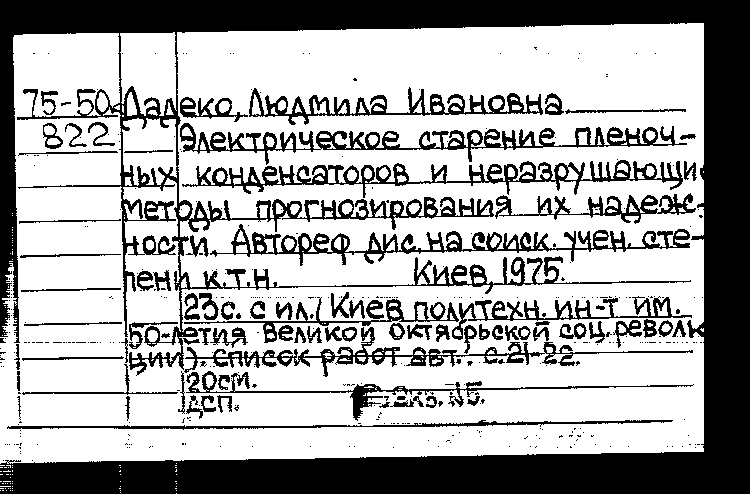 75-50 Дадеко, Людмила Ивановна.
822 Электрическое старение пленоч-
ных конденсаторов и неразрушающие
методы прогнозирования их надеж-
ности. Автореф дис. на соиск. учен. сте-
пени к.т.н. Киев, 1975.
23с. с ил. (Киев политехн. ин-т им.
50-летия Великой Октябрьской соц. револю
ции). список работ авт.: с.21-22.
20см.
ДСП. Экз. №5.